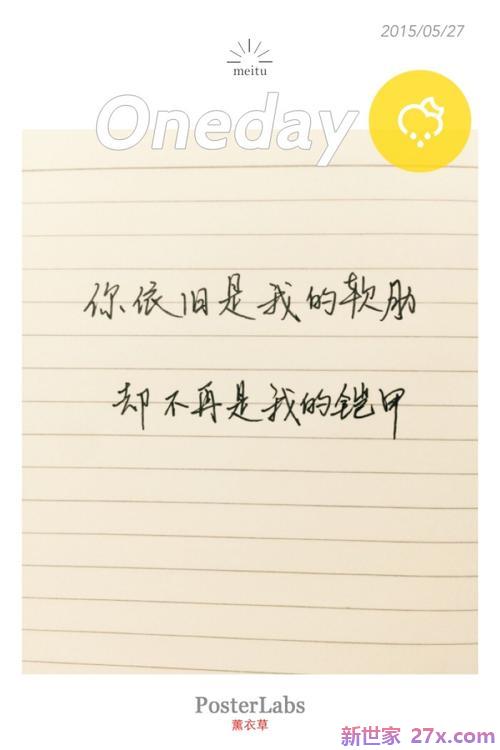 2015/05/27
meitu
Oneday
你依旧是我的软肋
却不再是我的铠甲
PosterLabs
薰衣草
新世家 27x.com